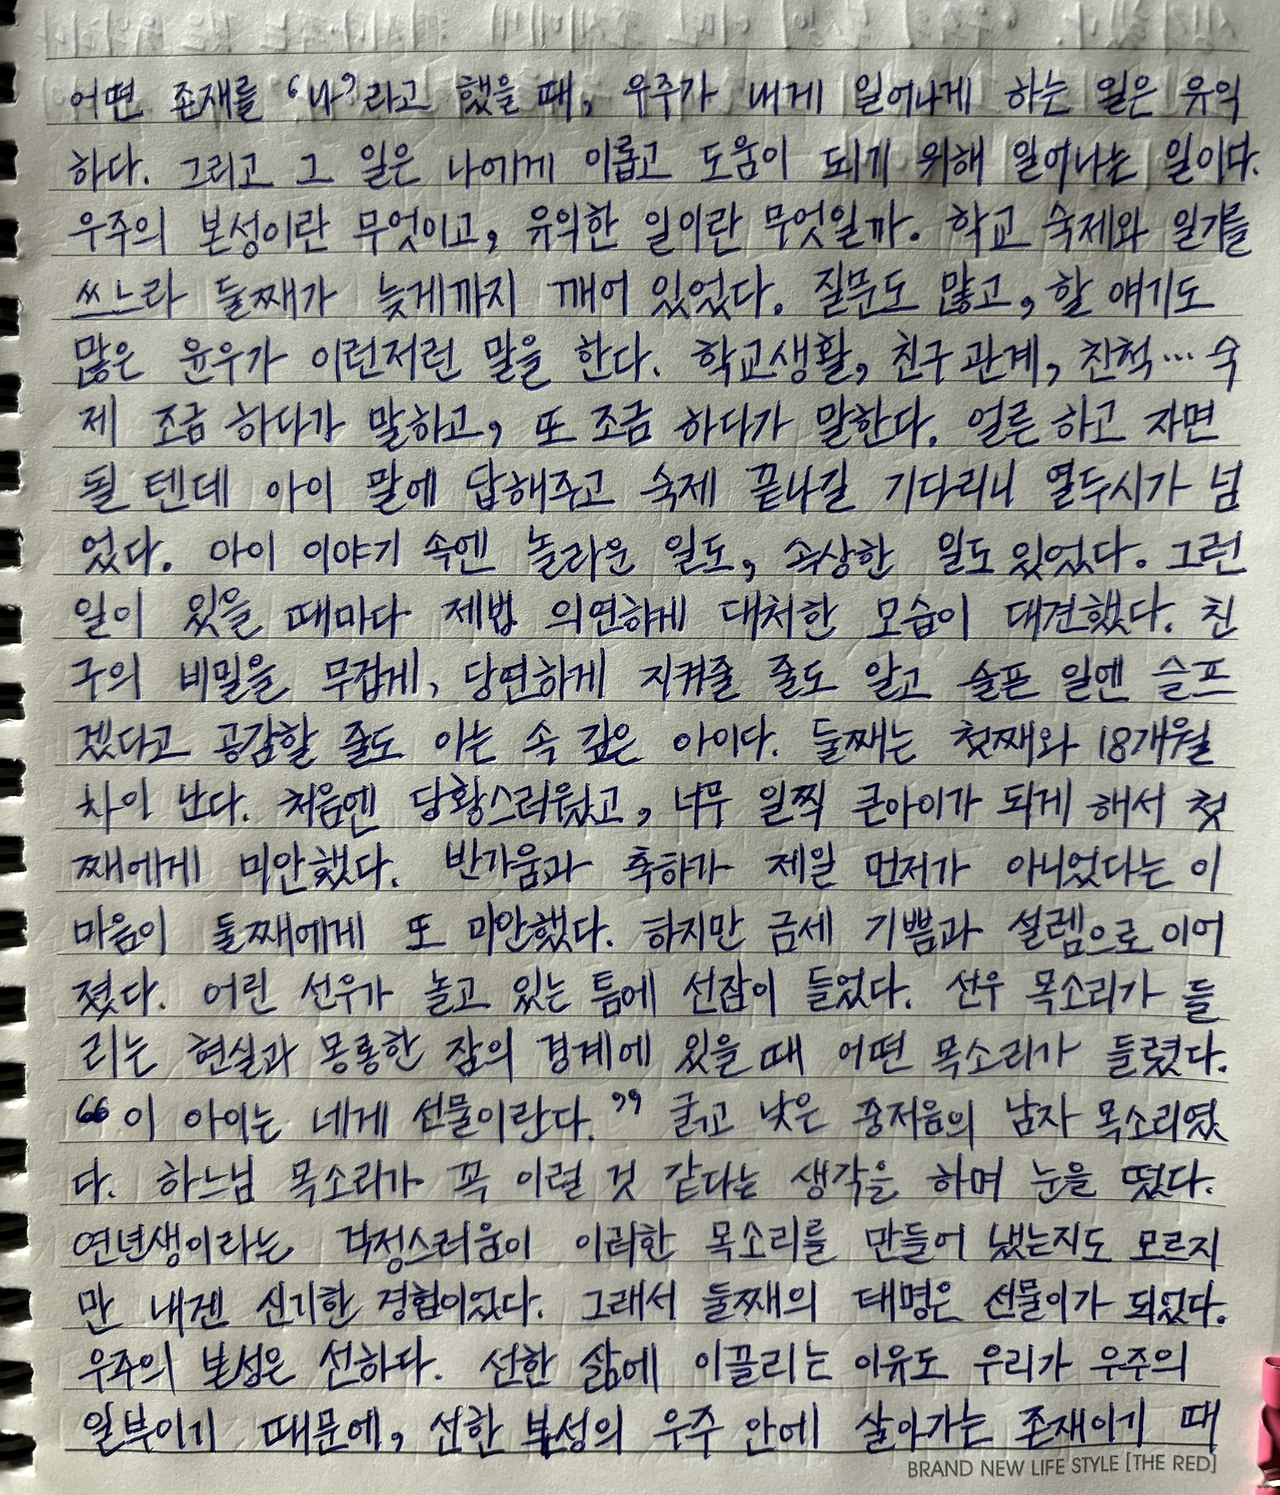 어떤 존재를 ‘나’라고 했을 때, 우주가 내게 일어나게 하는 일은 유익
하다. 그리고 그 일은 나에게 이롭고 도움이 되기 위해 일어나는 일이다.
우주의 본성이란 무엇이고, 유익한 일이란 무엇일까. 학교 숙제와 일기를
쓰느라 둘째가 늦게까지 깨어 있었다. 질문도 많고, 할 얘기도
많은 윤우가 이런저런 말을 한다. 학교생활, 친구관계, 친척… 숙
제 조금 하다가 말하고, 또 조금 하다가 말한다. 얼른 하고 자면
될 텐데 아이 말에 답해주고 숙제 끝나길 기다리니 열두시가 넘
었다. 아이 이야기 속엔 놀라운 일도, 속상한 일도 있었다. 그런
일이 있을 때마다 제법 의연하게 대처한 모습이 대견했다. 친
구의 비밀을 무겁게, 당연하게 지켜줄 줄도 알고 슬픈 일엔 슬프
겠다고 공감할 줄도 아는 속 깊은 아이다. 둘째는 첫째와 18개월
차이 난다. 처음엔 당황스러웠고, 너무 일찍 큰아이가 되게 해서 첫
째에게 미안했다. 반가움과 축하가 제일 먼저가 아니었다는 이
마음이 둘째에게 또 미안했다. 하지만 금세 기쁨과 설렘으로 이어
졌다. 어린 선우가 놀고 있는 틈에 선잠이 들었다. 선우 목소리가 들
리는 현실과 몽롱한 잠의 경계에 있을 때 어떤 목소리가 들렸다.
“이 아이는 네게 선물이란다.” 굵고 낮은 중저음의 남자 목소리였
다. 하느님 목소리가 꼭 이럴 것 같다는 생각을 하며 눈을 떴다.
연년생이라는 걱정스러움이 이러한 목소리를 만들어 냈는지도 모르지
만 내겐 신기한 경험이었다. 그래서 둘째의 태명은 선물이가 되었다.
우주의 본성은 선하다. 선한 삶에 이끌리는 이유도 우리가 우주의
일부이기 때문에, 선한 본성의 우주 안에 살아가는 존재이기 때
BRAND NEW LIFE STYLE [THE RED]